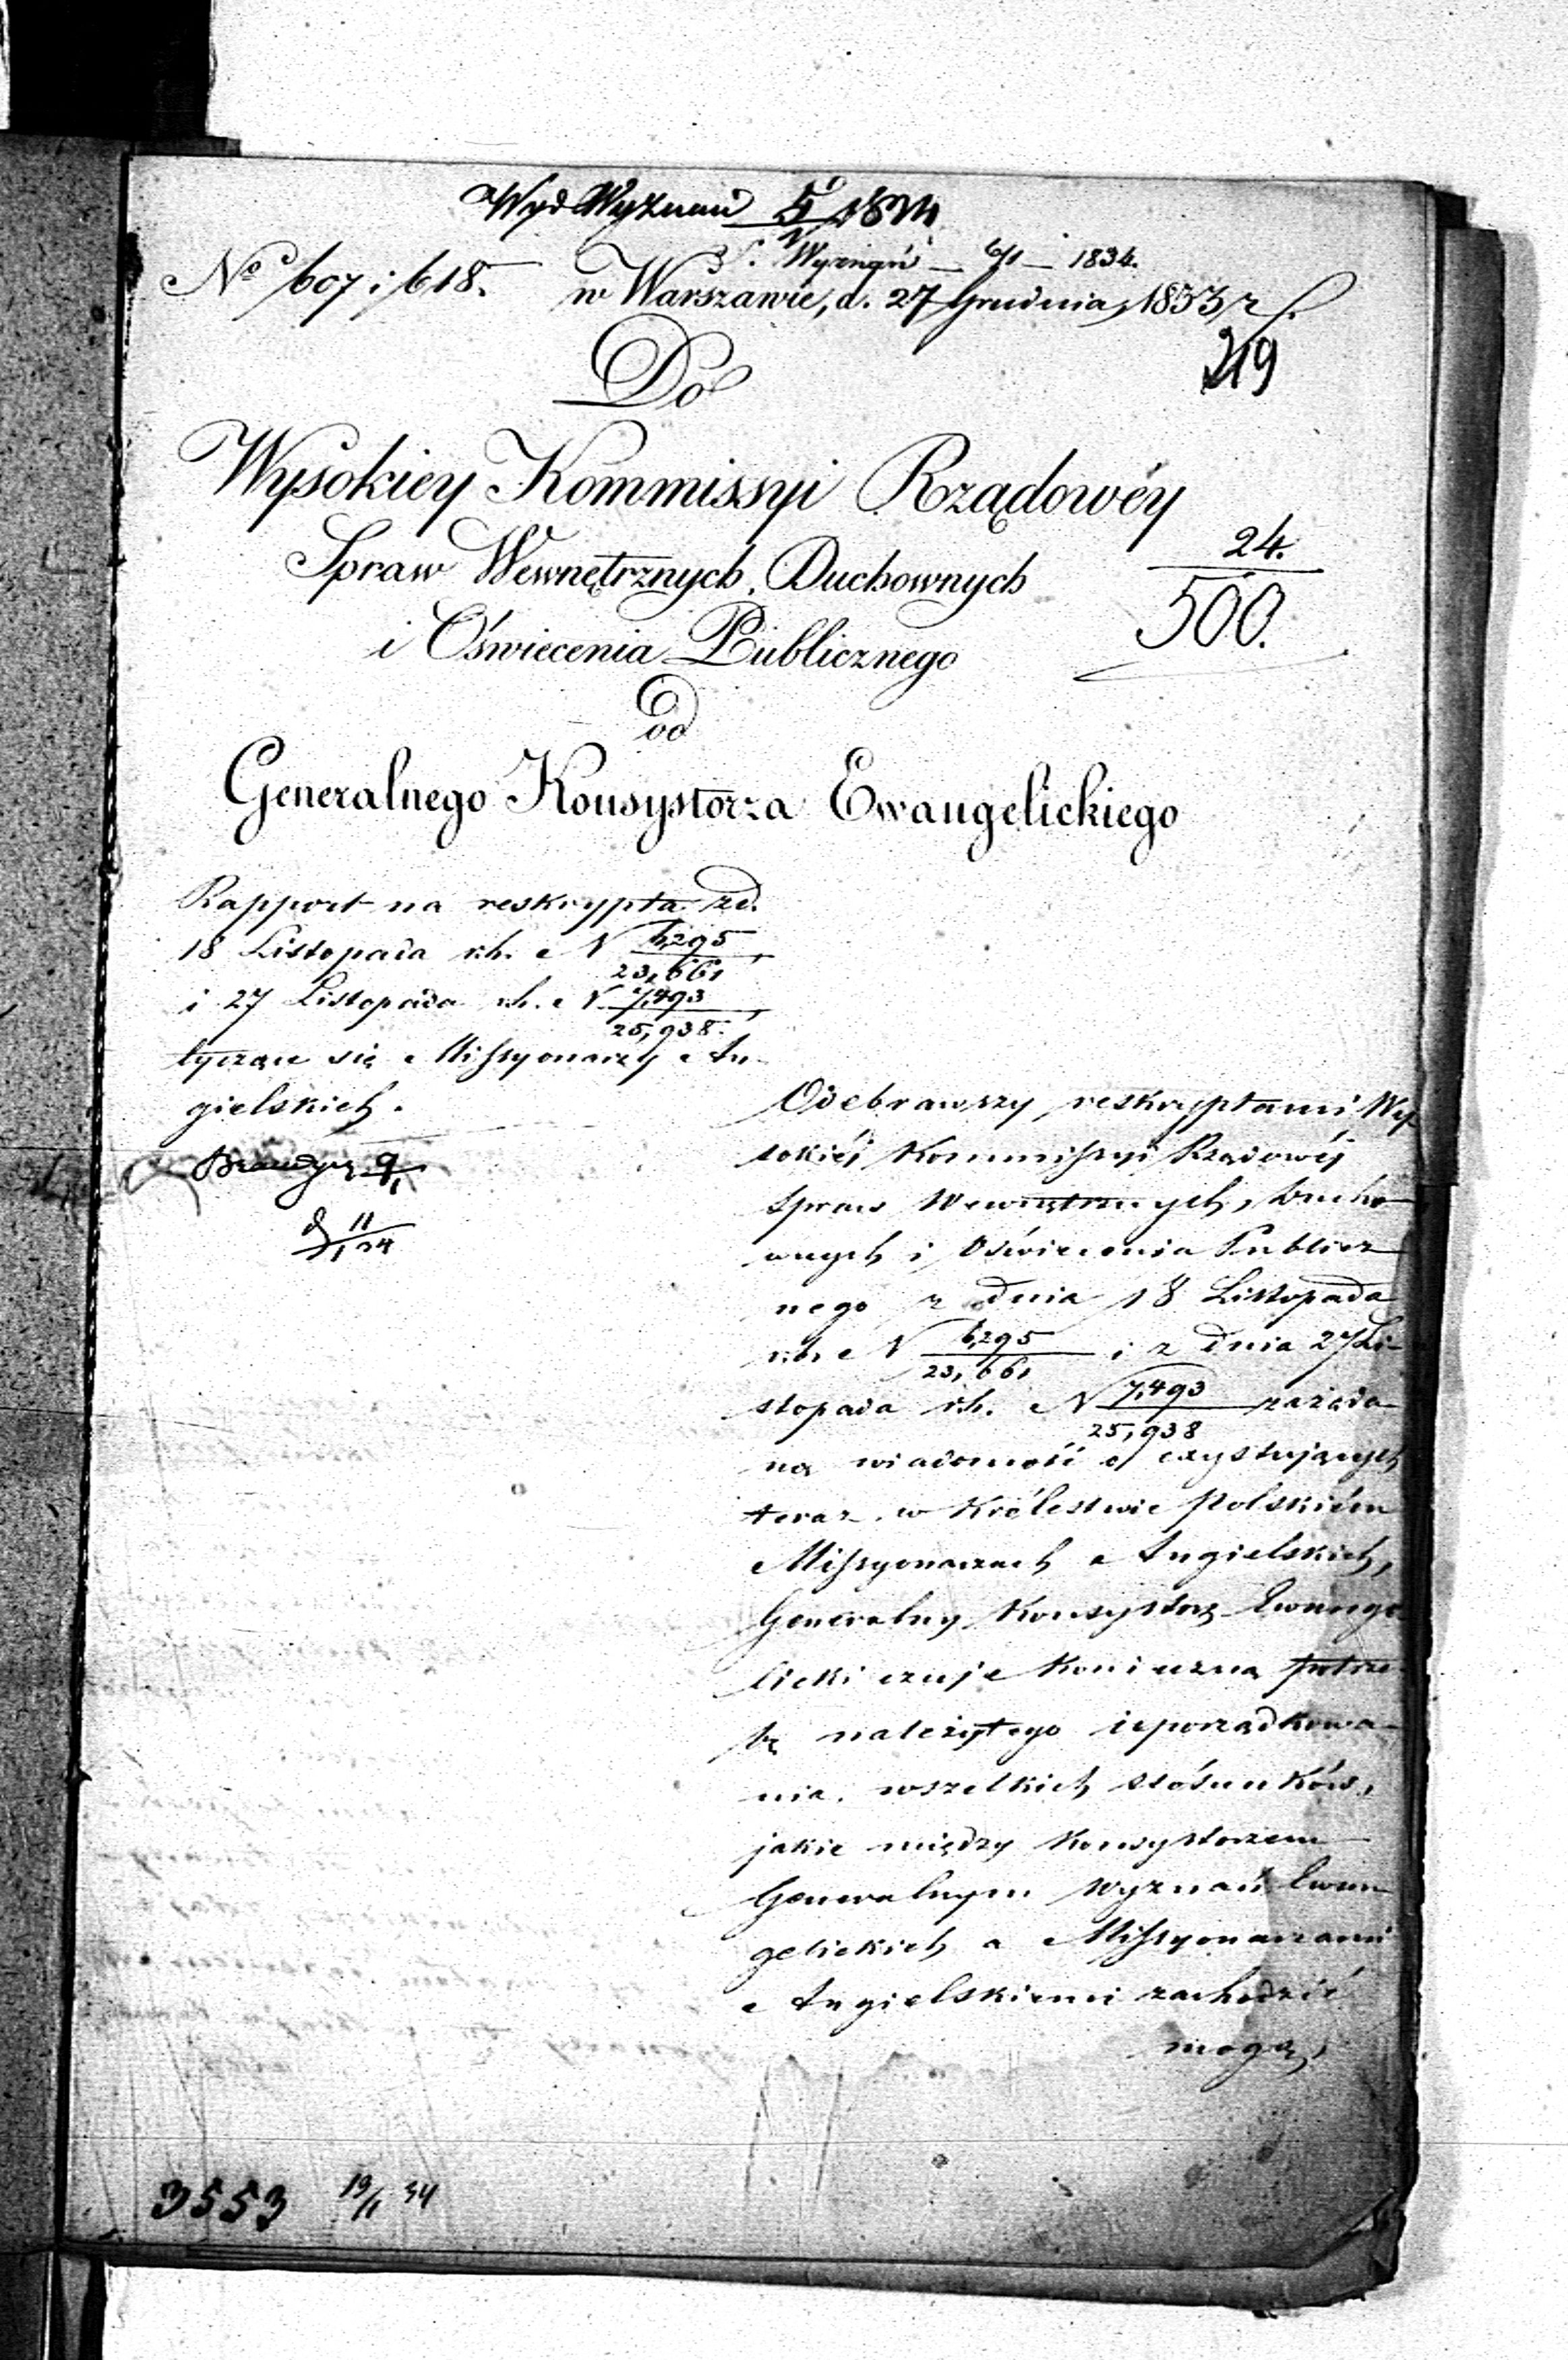 Wyd Wyznań 5/1 1834
S. Wyznań — 6/1 — 1834.
No 607 i 618. w Warszawie, d. 27 Grudnia 1833 r.
219
Do
Wysokiey Kommissyi Rządowéy
Spraw Wewnętrznych, Duchownych
24.
500.
i Oświecenia Publicznego
od
Generalnego Konsystorza Ewangelickiego
Rapport na reskrypta zd.
18 Listopada r.b. N 6,295/23,661
i 27 Listopada r.b. N 7,493/25,938.
tyczące się Missyonarzy An-
gielskich.
11
Odebrawszy reskryptami Wy-
sokiéj Kommissyi Rządowéj
Spraw Wewnętrznych, Ducho-
wnych i Oświecenia Publicz-
nego z dnia 18 Listopada
r.b. N 6,295/23,661 i z dnia 27 Li-
stopada r.b. N 7,493/25,938 zażąda-
ną wiadomość o exystujących
teraz w Królestwie Polskiém
Missyonarzach Angielskich,
Generalny Konsystorz Ewange-
licki czuje konieczną potrze-
bę należytego uporządkowa-
nia wszelkich stósunków,
jakie między Konsystorzem
Generalnym Wyznań Ewan-
gelickich a Missyonarzami
Angielskiemi zachodzić
mogą,
3553 19/1 34